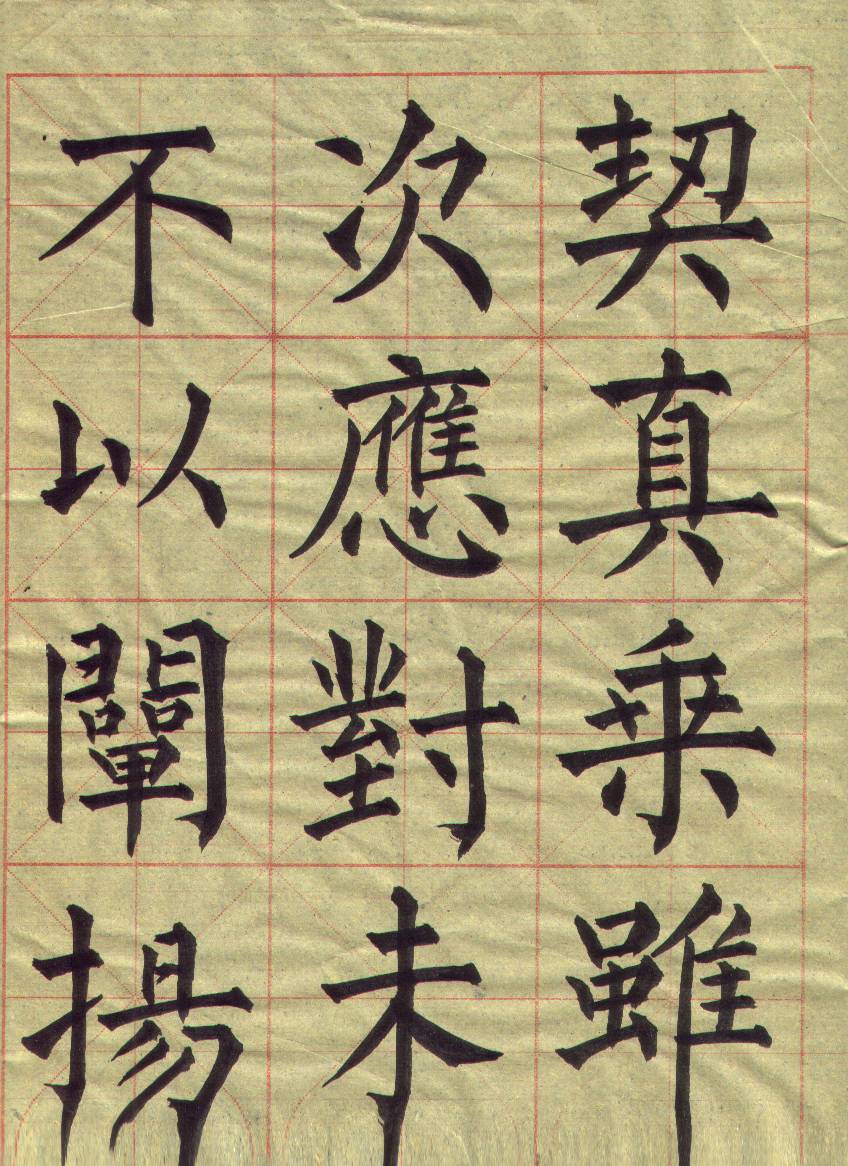 契真乘雖
次應對未
不以闡揚